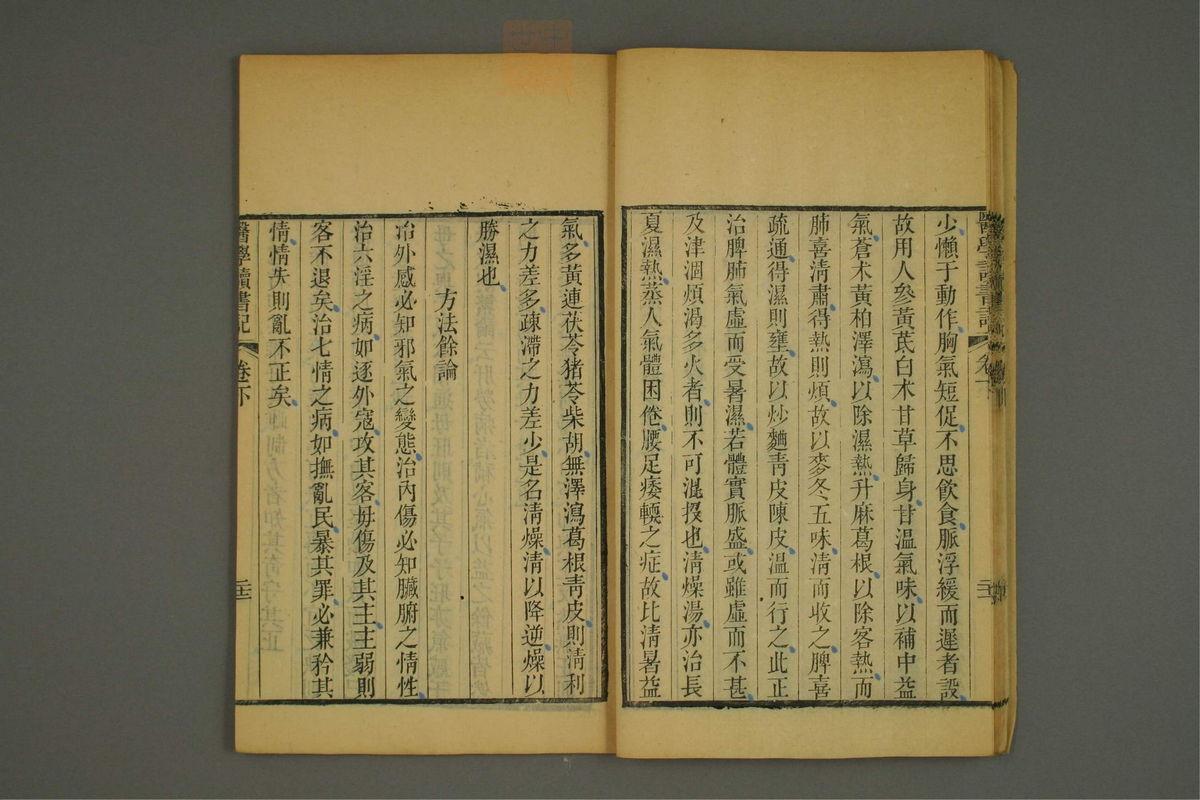 少懶于動作胸氣短促不思飲食脈浮緩而遲者設
故用人參黃芪白朮甘草歸身甘溫氣味以補中益
氣蒼朮黃柏澤瀉以除濕熱升麻葛根以除客熱而
肺喜清肅得熱則煩故以麥冬五味清而收之脾喜
疏通得濕則壅故以炒麯青皮陳皮溫而行之此正
治脾肺氣虛而受暑濕若體實脈盛或雖虛而不甚
及津涸煩渴多火者則不可混投也清燥湯亦治長
夏濕熱蒸人氣體困倦腰足痿輭之症故比清暑益
氣多黃連茯苓猪苓柴胡無澤瀉葛根青皮則清利
之力差多疎滯之力差少是名清燥清以降逆燥以
勝濕也
方法餘論
治外感必知邪氣之變態治內傷必知臟腑之情性
治六淫之病如逐外寇攻其客毋傷及其主主弱則
客不退矣治七情之病如撫亂民暴其罪必兼矜其
情情失則亂不正矣
醫學讀書記 卷下 二十二